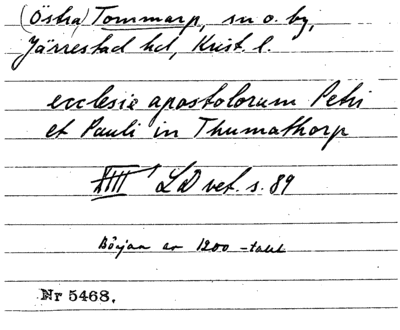 (Östra) Tommarp, sn o. by,
Järrestad hd, Krist. l.
ecclesie apostolorum Petri
et Pauli in Thumathorp
XIII' LD vet. s. 89
Början av 1200-talet
Nr 5468.